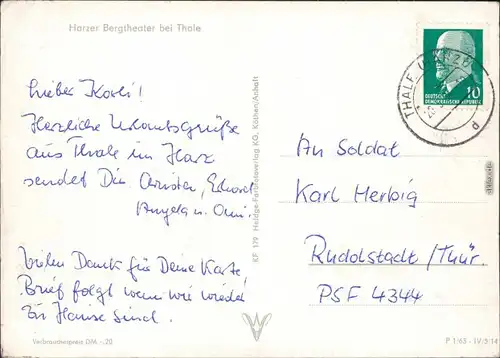 Harzer Bergtheater bei Thale
Lieber Karli!
Herzliche Urlaubsgrüße
aus Thale im Harz
sendet Dir Christa, Eduard
Angela u. Omi.
Vielen Dank für Deine Karte!
Brief folgt wenn wir wieder
zu Hause sind.
Verbraucherpreis DM -.20
KF 179 Heldge-Farbfotoverlag KG, Köthen/Anhalt
THALE (HARZ)
DEUTSCHE
DEMOKRATISCHE REPUBLIK
10
An Soldat
Karl Herbig
Rudolstadt / Thür.
PSF 4344
P 1/65 - IV/5 14